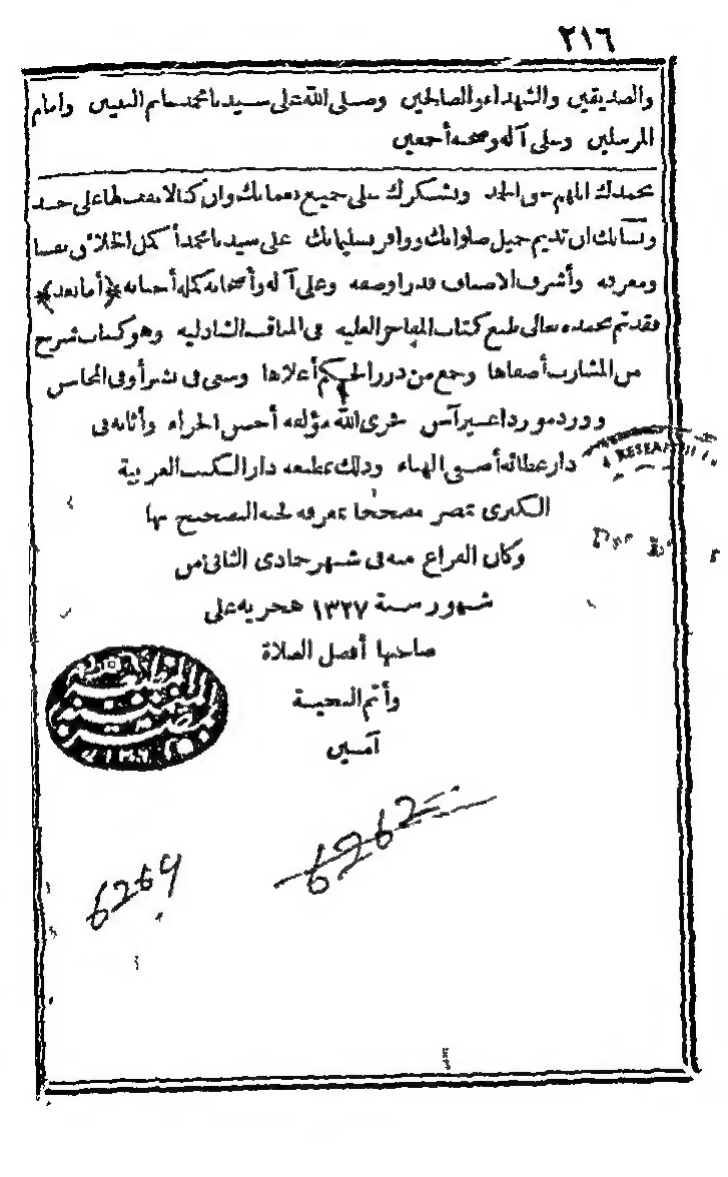 ٢١٦
والصديقين والشهداء والصالحين وصلى الله على سيدنا محمد خاتم النبيين وامام
المرسلين وعلى آله وصحبه أجمعين
نحمدك اللهم حق الحمد ونشكرك على جميع نعمائك وان كنا لا على حد
ونسألك ان تديم جميل صلواتك ووافر تسليماتك على سيدنا محمد أكمل الخلائق نفسا
ومعرفة وأشرف الاصناف قدرا وصفه وعلى آله وأصحابه كمله أحبابه ﴿أما بعد﴾
فقد تم بحمده تعالى طبع كتاب المفاخر العليه فى المناقب الشاذليه وهو كتاب شرح
من المشارب أصفاها وجمع من درر الحكم أعلاها وسعى فى نشر أوفى المحاسن
وورد مورداغير آسن جزى الله مؤلفه أحسن الجزاء وأثابه فى
دار عطائه أصفى الهناء وذلك بمطبعه دار الكتب العربية
الكبرى بمصر مصححا بمعرفه لجنه التصحيح بها
وكان الفراغ منه فى شهر جمادى الثانى من
شهور سنة ١٣٢٧ هجريه على
صاحبها أفضل الصلاة
وأتم التحية
آمين
6262
6264